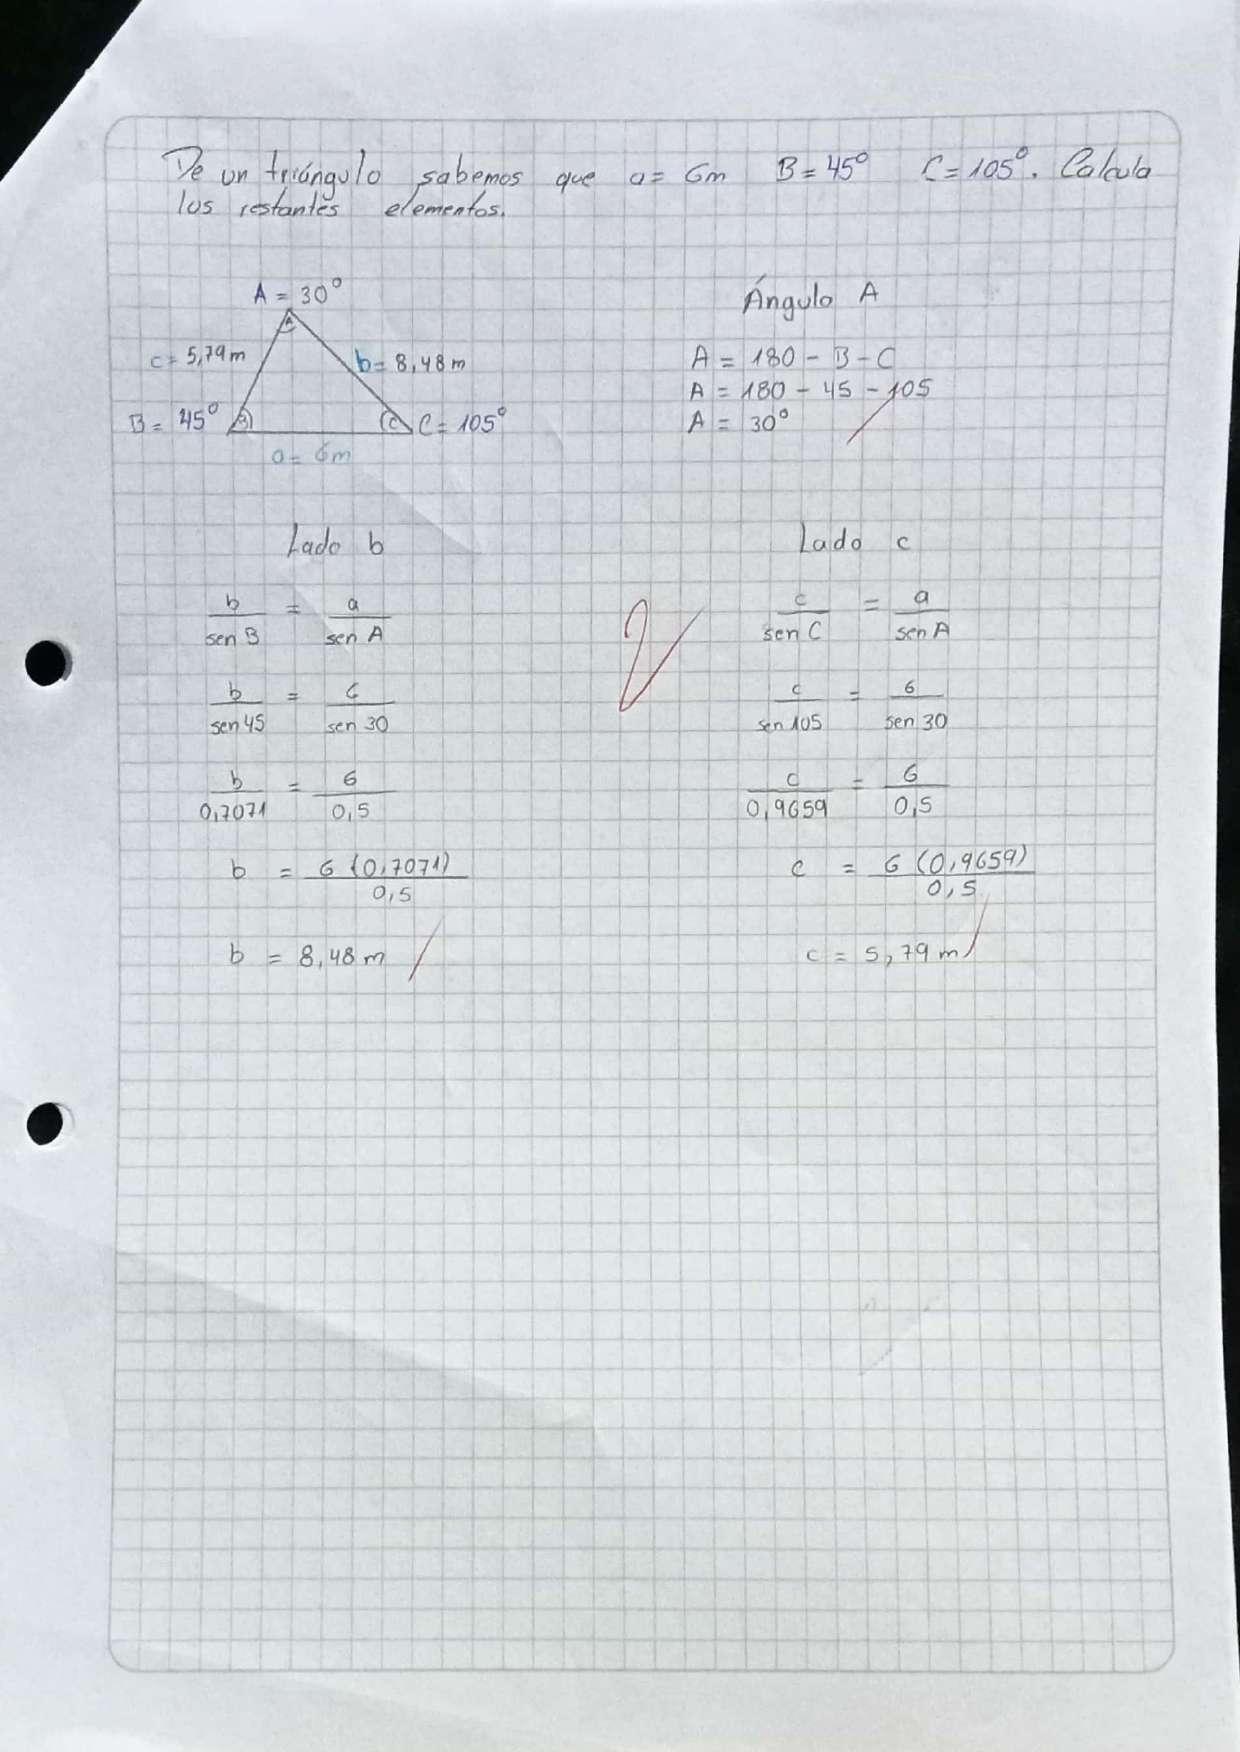 De un triángulo sabemos que a = 6m B = 45° C = 105°. Calcula
los restantes elementos.
A = 30°
A
c = 5,79 m
b = 8,48 m
B = 45°
B
C
C = 105°
a = 6m
Ángulo A
A = 180 - B - C
A = 180 - 45 - 105
A = 30°
Lado b
b / sen B = a / sen A
b / sen 45 = 6 / sen 30
b / 0,7071 = 6 / 0,5
b = 6 (0,7071) / 0,5
b = 8,48 m
Lado c
c / sen C = a / sen A
c / sen 105 = 6 / sen 30
c / 0,9659 = 6 / 0,5
c = 6 (0,9659) / 0,5
c = 5,79 m